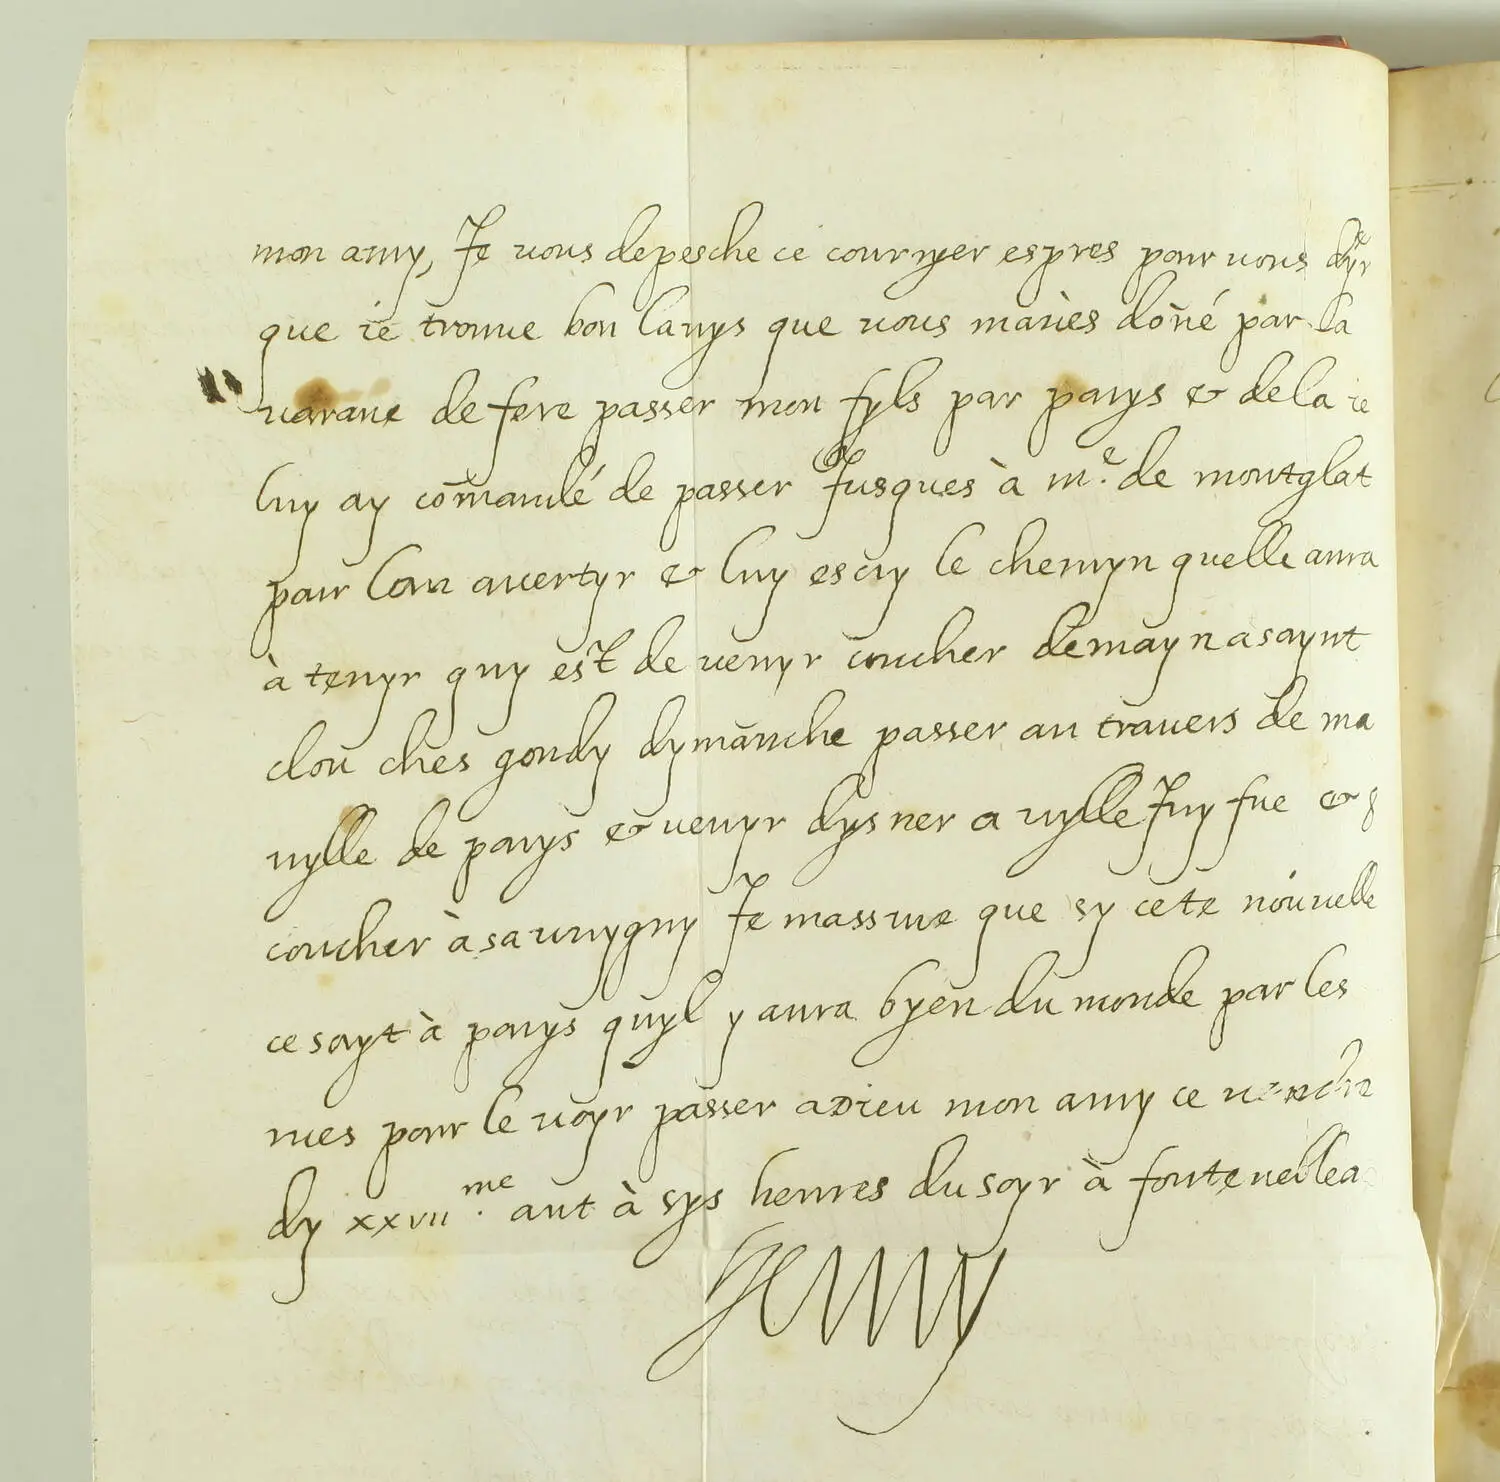 mon amy, Je vous depesche ce couryer espres pour vous dyre
que ie trouue bon lauys que vous mauies doñé par la
varane de fere passer mon fyls par parys & de la ie
luy ay comandé de passer Jusques à me. de montglat
pour lan auertyr & luy escry le chemyn quelle aura
à tenyr quy est de venyr coucher demayn a saynt
clou ches gondy dymanche passer au trauers de ma
vylle de parys & venyr dysner a vylleJuyfue &
coucher à sauuygny Je massure que sy cete nouuelle
ce sayt à parys quyl y aura byen du monde par les
rues pour le voyr passer adieu mon amy ce vendre
dy xxvii.me aut à sys heures du soyr à fontenebleau
Henry